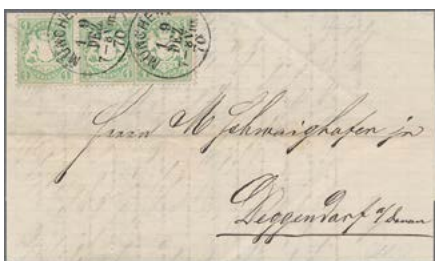 MÜNCHEN
19
DEZ
7-8 Vm.
70
MÜNCHEN
19
DEZ
7-8 Vm.
70
Herrn M Schwaighofer jr
Deggendorf a/Donau